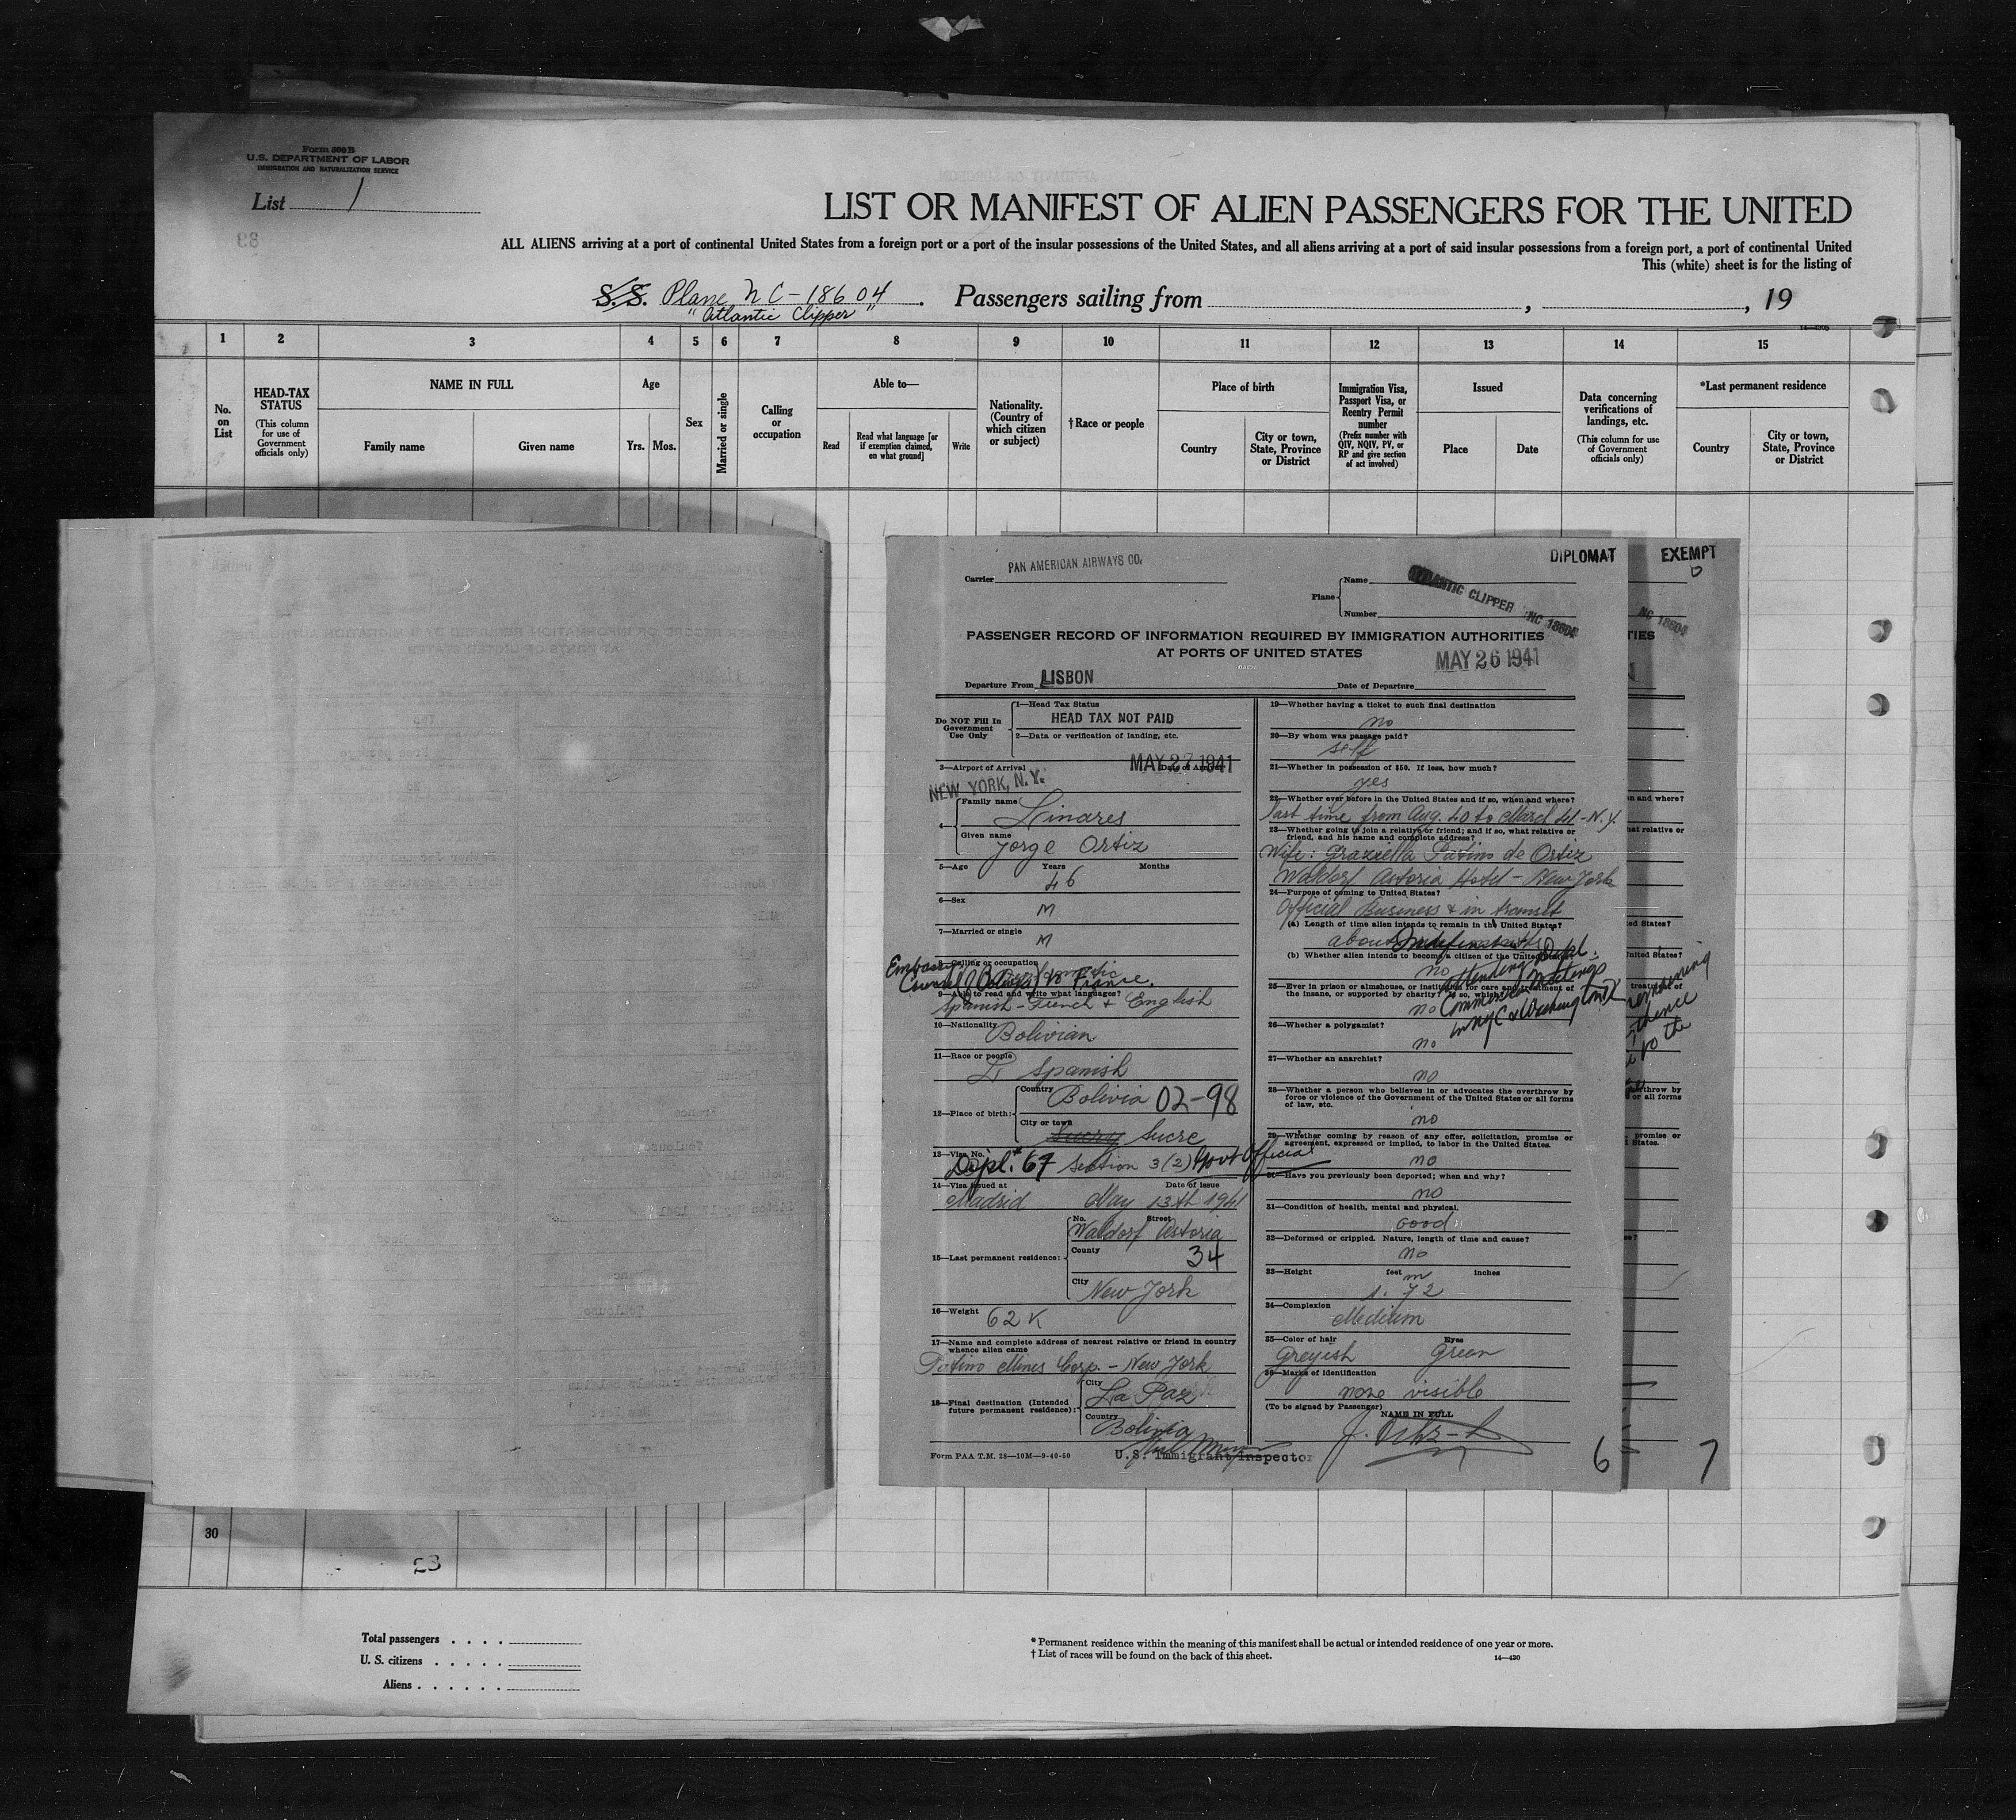 Form 500 B
U.S. DEPARTMENT OF LABOR
IMMIGRATION AND NATURALIZATION SERVICE
List 1
LIST OR MANIFEST OF ALIEN PASSENGERS FOR THE UNITED
ALL ALIENS arriving at a port of continental United States from a foreign port or a port of the insular possessions of the United States, and all aliens arriving at a port of said insular possessions from a foreign port, a port of continental United
This (white) sheet is for the listing of
S.S. Plane NC-18604 Passengers sailing from , , 19
"Atlantic Clipper"
1 2 3 4 5 6 7 8 9 10 11 12 13 14 15
No. on List
HEAD-TAX STATUS
(This column for use of Government officials only)
NAME IN FULL
Family name
Given name
Age
Yrs. Mos.
Sex
Married or single
Calling or occupation
Able to—
Read
Read what language [or if exemption claimed, on what ground]
Write
Nationality. (Country of which citizen or subject)
†Race or people
Place of birth
Country
City or town, State, Province or District
Immigration Visa, Passport Visa, or Reentry Permit number
(Prefix number with QIV, NQIV, PV, or RP and give section of act involved)
Issued
Place
Date
Data concerning verifications of landings, etc.
(This column for use of Government officials only)
*Last permanent residence
Country
City or town, State, Province or District
DIPLOMAT
EXEMPT
Carrier PAN AMERICAN AIRWAYS CO.
Plane
Name ATLANTIC CLIPPER
Number NC 18604
PASSENGER RECORD OF INFORMATION REQUIRED BY IMMIGRATION AUTHORITIES
AT PORTS OF UNITED STATES
MAY 26 1941
Departure From LISBON
Date of Departure
Do NOT Fill In Government Use Only
1—Head Tax Status
HEAD TAX NOT PAID
2—Data or verification of landing, etc.
3—Airport of Arrival
NEW YORK, N.Y.
MAY 27 1941
4—
Family name Linares
Given name Jorge Ortiz
5—Age Years Months
46
6—Sex
M
7—Married or single
M
8—Calling or occupation
Embassy
Counsel Bolivia to France.
9—Able to read and write what languages?
Spanish-French & English
10—Nationality
Bolivian
11—Race or people
Spanish
12—Place of birth:
Country Bolivia 02-98
City or town Sucre
13—Visa No.
Dipl. 67 Section 3(2) Govt Official
14—Visa issued at Date of issue
Madrid May 13th 1941
15—Last permanent residence:
No. Street
Waldorf Astoria
County 34
City New York
16—Weight 62 K
17—Name and complete address of nearest relative or friend in country whence alien came
Patino Mines Corp. - New York
18—Final destination (Intended future permanent residence):
City La Paz
Country Bolivia
Form PAA T.M. 28—10M—9-40-50
U.S. Immigrant Inspector
19—Whether having a ticket to such final destination
no
20—By whom was passage paid?
self
21—Whether in possession of $50. If less, how much?
yes
22—Whether ever before in the United States and if so, when and where?
last time from Aug. 40 to March 41 - N.Y.
23—Whether going to join a relative or friend; and if so, what relative or friend, and his name and complete address?
Wife: Graziella Patino de Ortiz
Waldorf Astoria Hotel - New York
24—Purpose of coming to United States?
Official Business & in transit
(a) Length of time alien intends to remain in the United States?
about
(b) Whether alien intends to become a citizen of the United States?
no
attending Dipl.
Commercial Meetings
in NYC & Washington D.C.
25—Ever in prison or almshouse, or institution for care and treatment of the insane, or supported by charity? If so, which?
no
26—Whether a polygamist?
no
27—Whether an anarchist?
no
28—Whether a person who believes in or advocates the overthrow by force or violence of the Government of the United States or all forms of law, etc.
no
29—Whether coming by reason of any offer, solicitation, promise or agreement, expressed or implied, to labor in the United States.
no
30—Have you previously been deported; when and why?
no
31—Condition of health, mental and physical.
Good
32—Deformed or crippled. Nature, length of time and cause?
no
33—Height feet inches
m
1.72
34—Complexion
Medium
35—Color of hair Eyes
Greyish Green
36—Marks of identification
none visible
(To be signed by Passenger)
NAME IN FULL
6
7
30
23
Total passengers
U. S. citizens
Aliens
* Permanent residence within the meaning of this manifest shall be actual or intended residence of one year or more.
† List of races will be found on the back of this sheet.
14—430